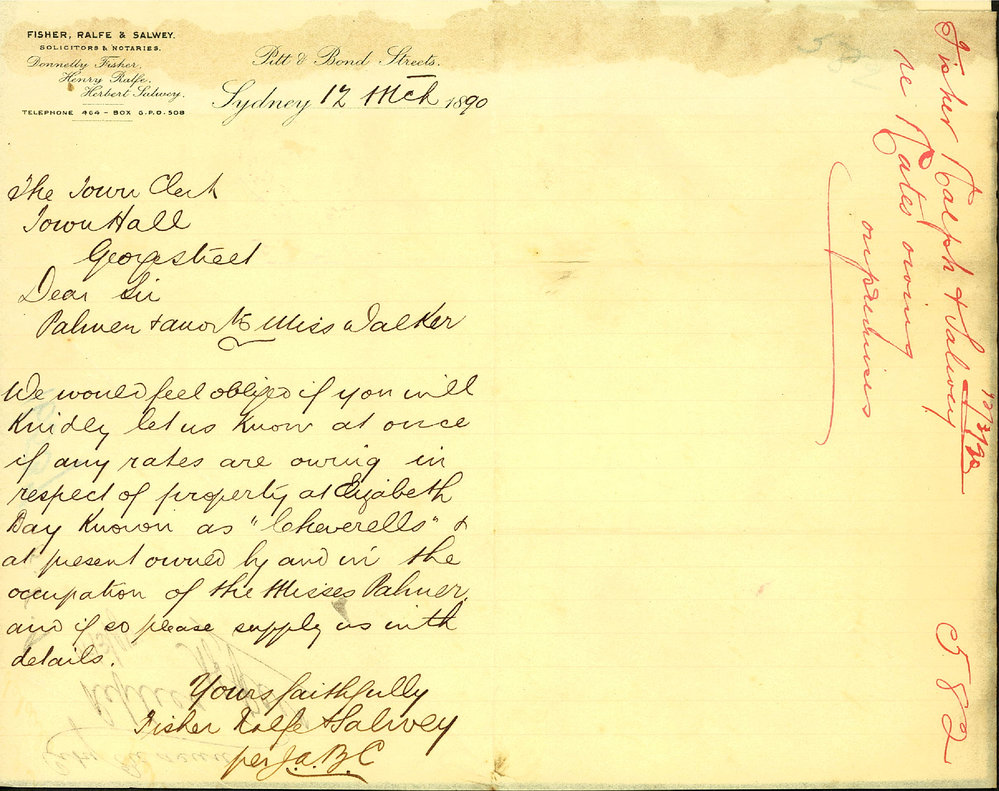 FISHER, RALFE & SALWEY.
SOLICITORS & NOTARIES.
Donnelly Fisher.
Henry Ralfe.
Herbert Salwey.
TELEPHONE 464 - BOX G.P.O. 508
Pitt & Bond Streets.
Sydney 12 Mch 1890
The Town Clerk
Town Hall
George street
Dear Sir
Palmer & anor to Miss Walker
We would feel obliged if you will
kindly let us know at once
if any rates are owing in
respect of property at Elizabeth
Bay known as "Cheverells" &
at present owned by and in the
occupation of the Misses Palmer,
and if so please supply us with
details.
Yours faithfully
Fisher Ralfe & Salwey
per J.A.B.C
Fisher Ralph & Salwey
12/3/90
re Rates owing
on premises
582